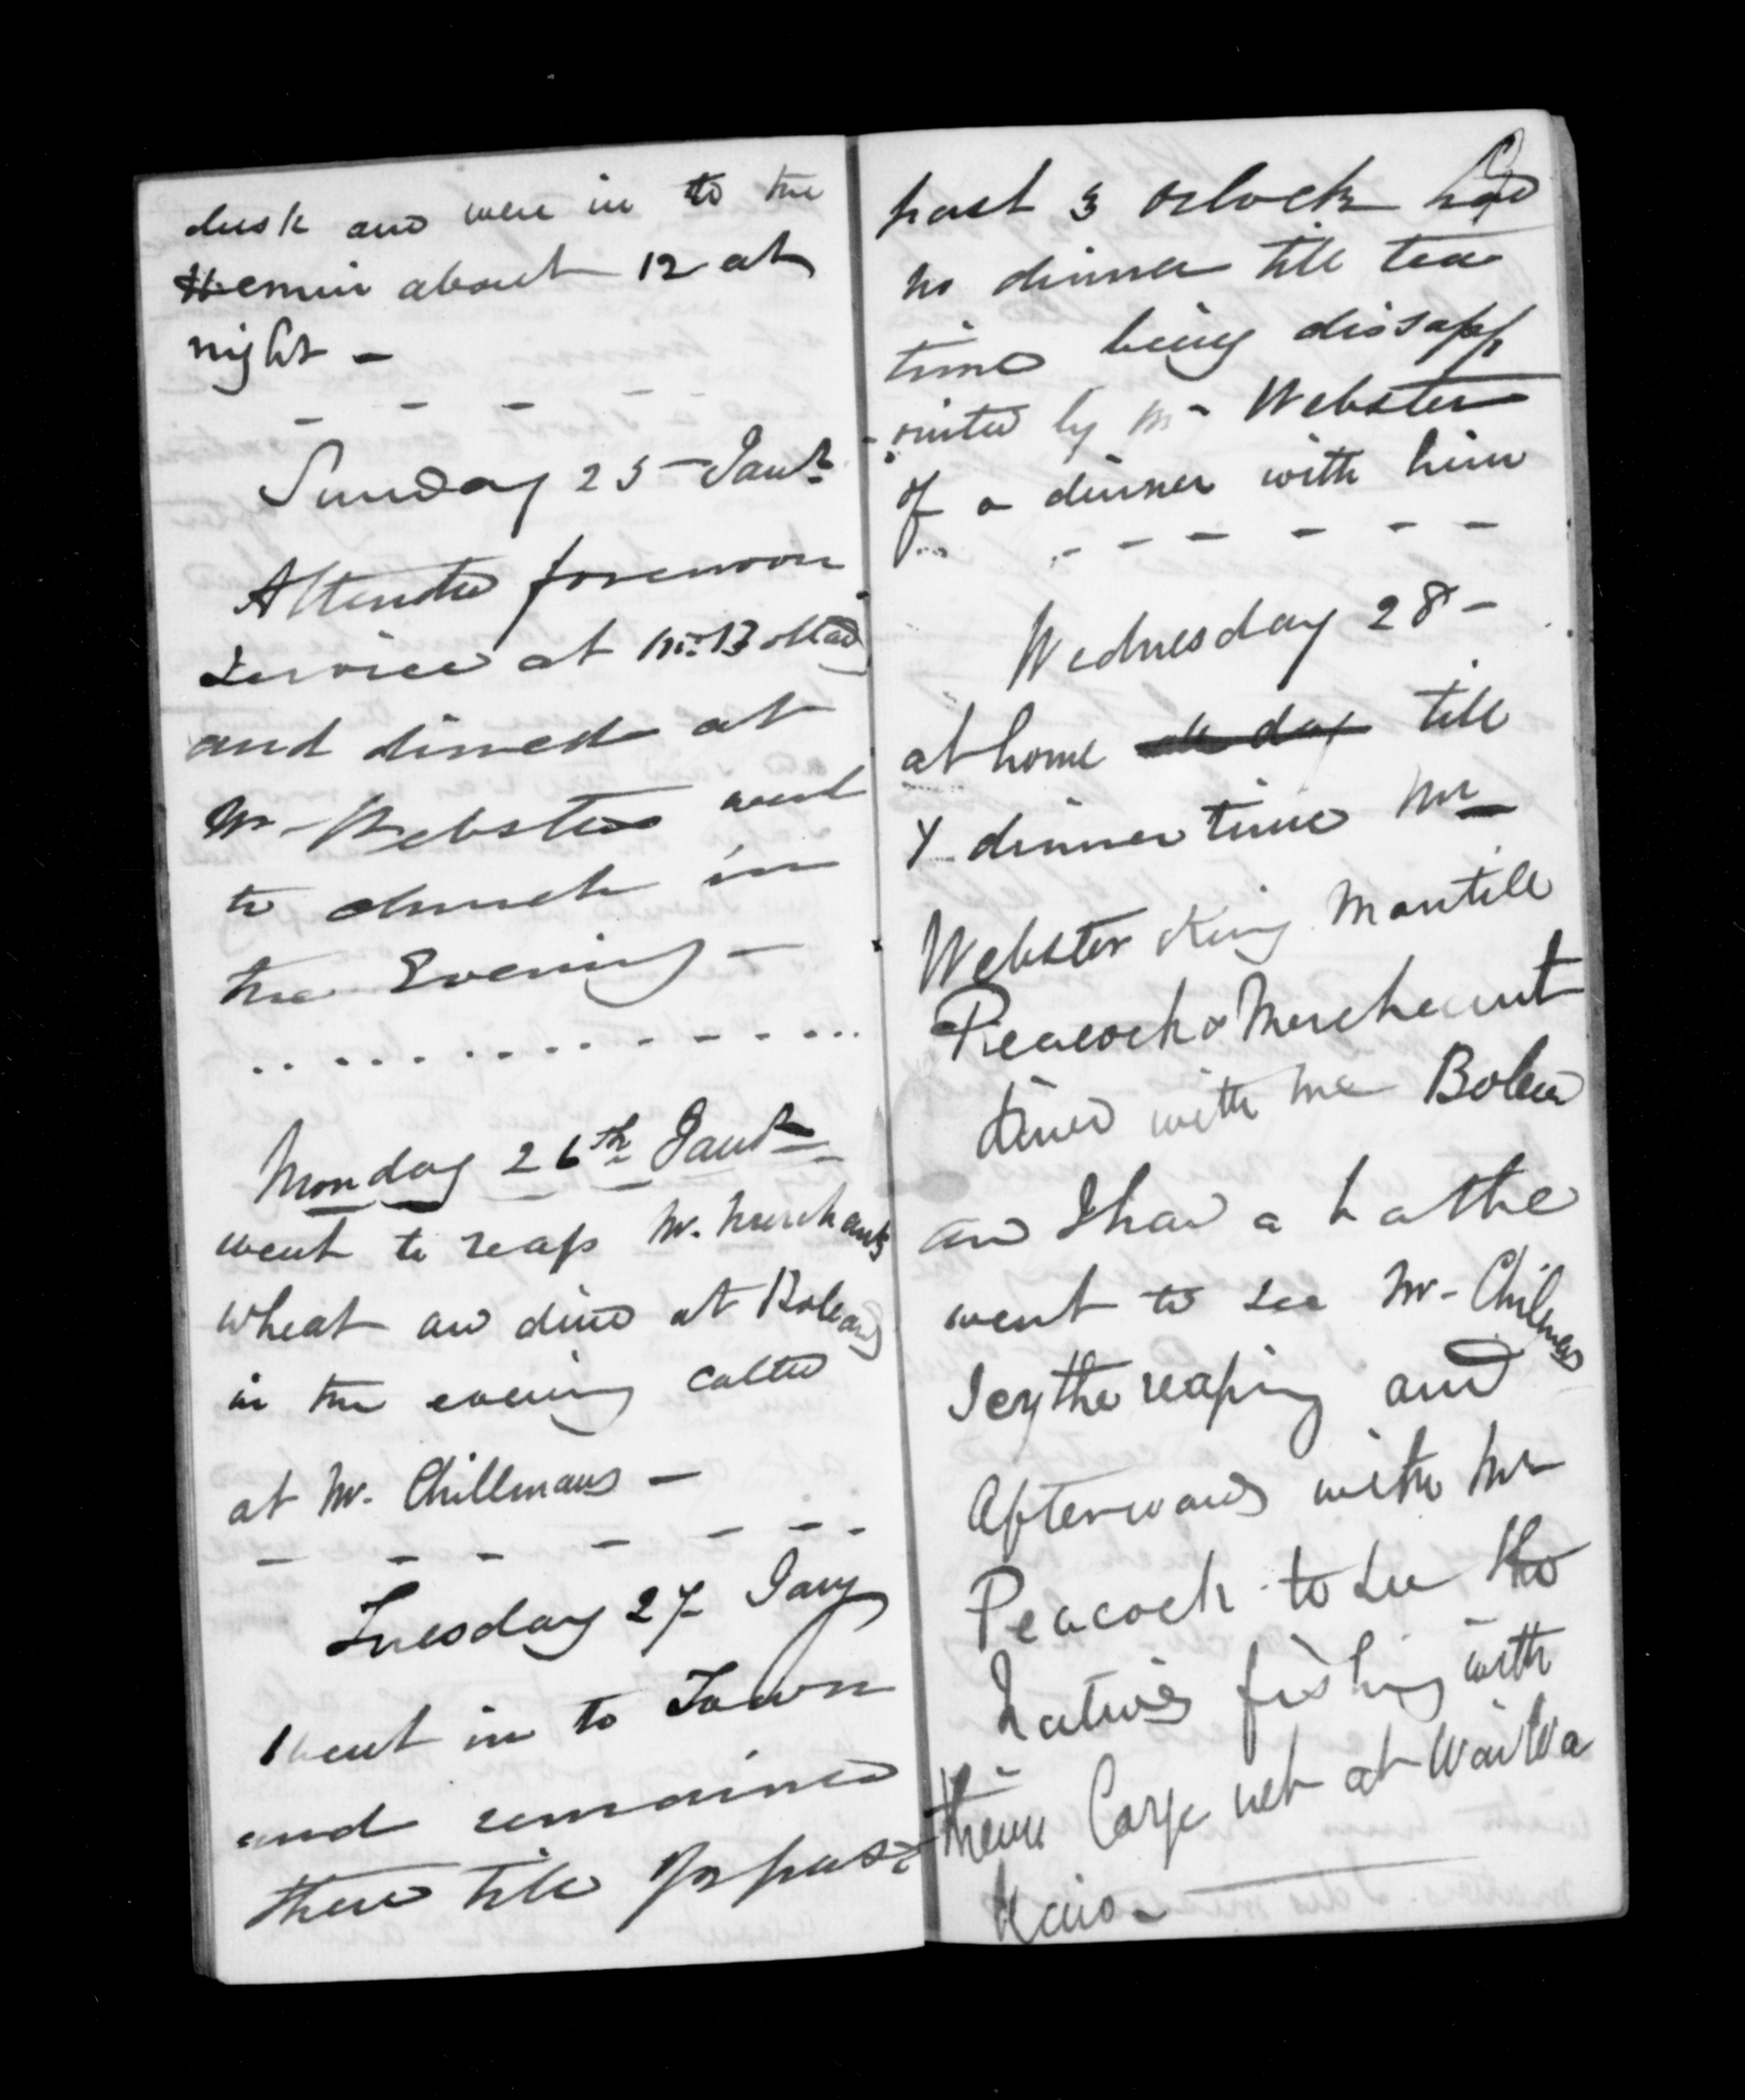 dusk and were in to the
about 12 at
night -
Sunday 25 - Jany
Attended forenoon
service at Mr. Bolland
and dined at
Mr - Websters and
to church in
the Evening -
Monday 26th Jany
went to reap Mr. Merchants
wheat and dined at Boleans
in the evening called
at Mr. Chillmans -
Tuesday 27 Jany
Went in to Town
and remained
there till 1/2 past
past 3 oclock had
no dinner till tea
time being dissapp
-ointed by Mr - Webster
of a dinner with him
Wednesday 28 -
at home all day till
dinner time Mr
Webster King Mantill
Peacock & Merchant
dined with me Bolean
and I had a bathe
went to see Mr - Chilmans
Scythe reaping and
Afterwards with Mr
Peacock to see the
Natives fishing with
their Large net at WaiWa
Kaio -